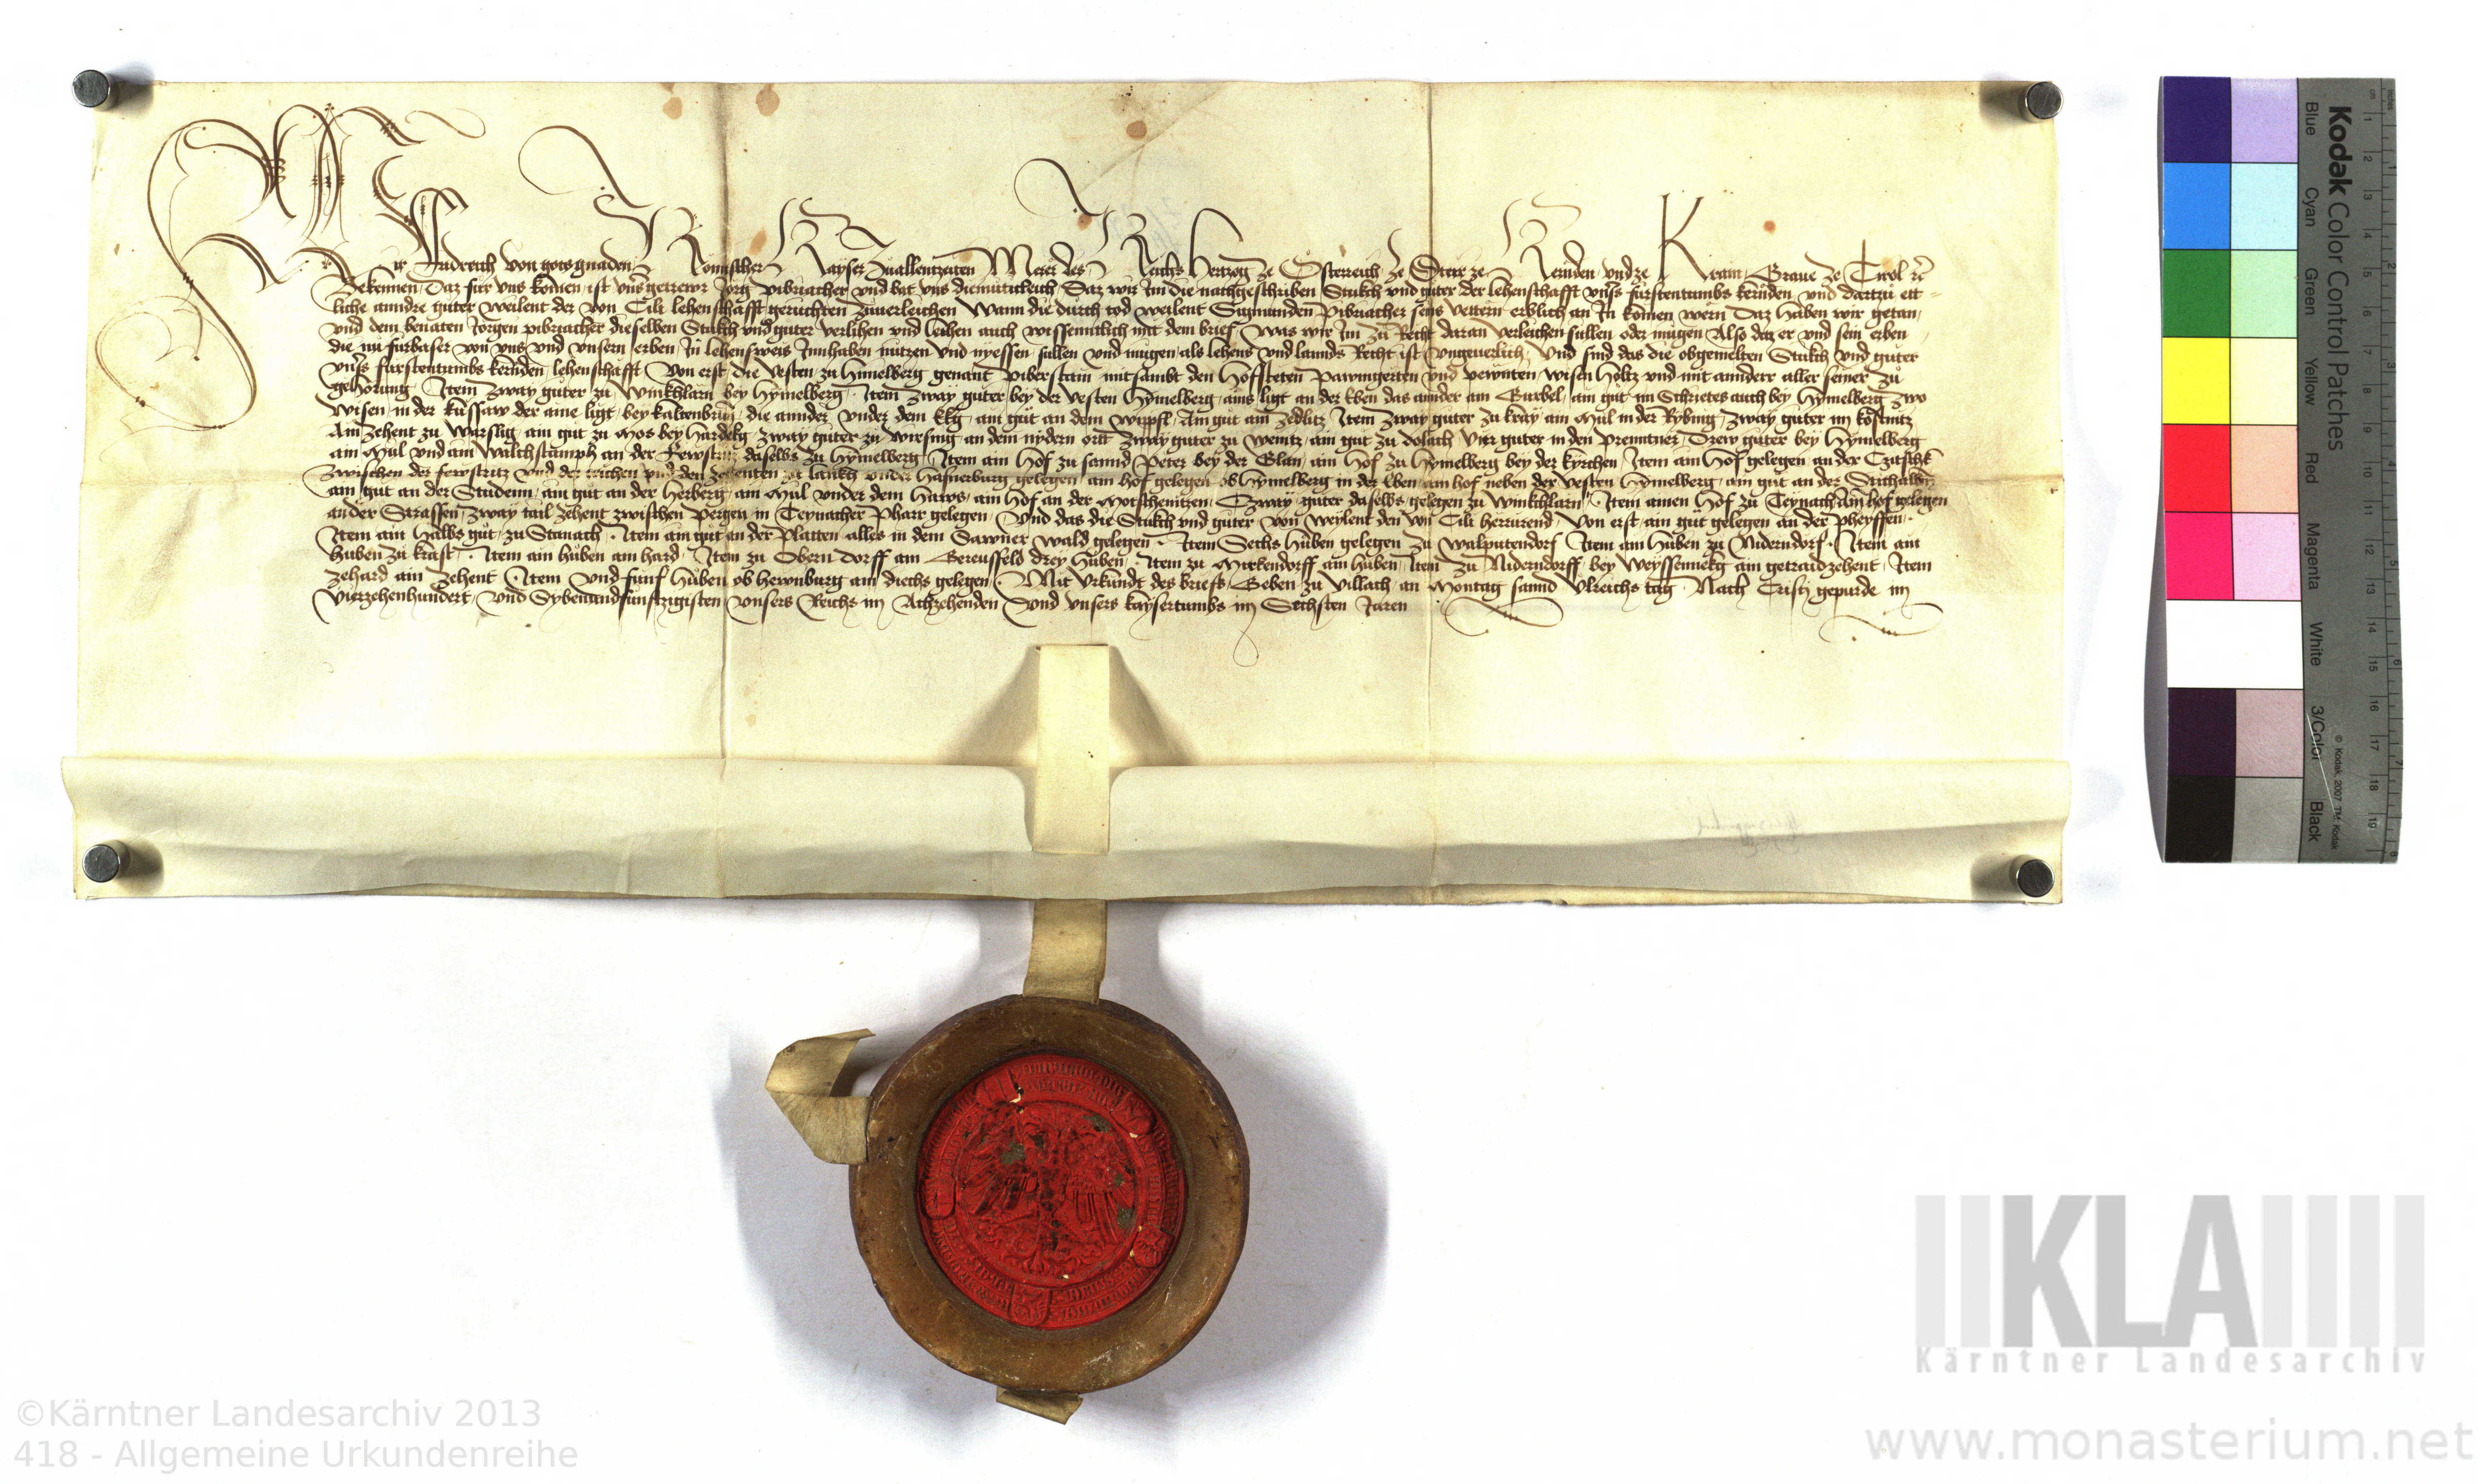 Wir Fridreich von gots gnaden Romischer Kayser zuallenzeiten Merer des Reichs Hertzog ze Österreich ze Steir ze Kernden vnd ze Krain Graue ze Tirol etc
Bekennen Daz für vns komen ist vnser getrewr Jorg pibriacher vnd bat vns diemutikleich Daz wir Im die nachgeschriben Stukch vnd guter der lehenschafft vnsers fürstentumbs kernden vnd dartzu ett-
liche anndre guter weilent der von Cili lehenschafft geruchten zuuerleichen Wann die durch tod weilent Sigmunden Pibriacher seins vettern erblich an In komen wern Daz haben wir getan
vnd dem benaten Jorgen pibriacher dieselben Stukch vnd guter verlihen vnd leihen auch wissenntlich mit dem brief was wir Im zu Recht daran verleichen sullen oder mugen Also daz er vnd sein erben
die nu furbaser von vns vnd vnsern erben In lehensweis Innhaben nutzen vnd nyessen sullen vnd mugen als lehens vnd lannds Recht ist vngeuerlich Vnd sind das die obgemelten Stukch vnd guter
vnsers fürstentumbs kernden lehenschafft Von erst die Vesten zu himelberg genant piberstain mitsambt den Hofsteten Pawmgerten vnd pewnten wisen holtz vnd mit annderr aller seiner zu
gehorung Item zway guter zu Winkhlarn bey hymelberg Item zway guter bey der vesten hymelberg ains ligt an der Eben das annder am Gurbel ain gut im Schrietes auch bey hymelberg zwo
wisen in der kussaw der aine ligt bey kaltenbrun die annder vnder dem Ekg ain gut an dem wippfl Ain gut am zedlitz Item zway guter zu kray ain Mul in der Rybnig zway guter im kostnitz
Ain zehent zu warslig ain gut zu Mos bey hardekg zway guter zu wirsing an dem nydern ortt zway guter zu wenitz ain gut zu dolach vier guter in den premitner Drew guter bey hymelberg
ain Mul vnd ain Walchstamph an der Fewstritz daselbs zu hymelberg Item ain hof zu sannd Peter bey der Glan ain hof zu hymelberg bey der kyrchen Item ain hof gelegen an der
zwischen der fewstritz vnd der reichen vnd den zehenten vnder hafnerburg gelegen ain hof gelegen ob hymelberg in der Eben ain hof neben der vesten hymelberg ain gut an der
ain gut an der Studenn ain gut an der herberg ain Mul vnder dem haws ain hof an der Motschenitzen Zway guter daselbs gelegen zu winkchlarn Item ainen hof zu Teynach Ain hof gelegen
an der Strassen zway tail zehent zwischen pergen in Teynacher Pharr gelegen Vnd das die Stukch vnd guter von weylent den von Cili herrurend Von erst ain gut gelegen an der pheyffen
Item ain halbs gut zu Stanach Item ain gut an der Platten alles in dem Sawner wald gelegen Item Sechs huben gelegen zu walputendorf Item ain huben zu Niderndorf Item ain
huben zu krast Item ain huben am hard Item zu Obern dorff am Gereutfeld drey huben Item zu Mitterndorff ain huben Item zu Niderndorff bey weyssennekg ain getraidzehent Item
zehard ain zehent Item vnd funf huben ob hewnburg am diechs gelegen Mit vrkundt des briefs Geben zu villach an Montag sannd Vlreichs tag Nach Cristi gepurde im
vierzehenhundert vnd Sybenundfunftzigisten vnsers Reichs im Achzehenden Vnd vnsers kaysertumbs im Sechsten Jaren
Kodak Color Control Patches
Blue Cyan Green Yellow Red Magenta White 3/Color Black
© Kodak, 2007 TM: Kodak
KLA
Kärntner Landesarchiv
©Kärntner Landesarchiv 2013
418 - Allgemeine Urkundenreihe
www.monasterium.net